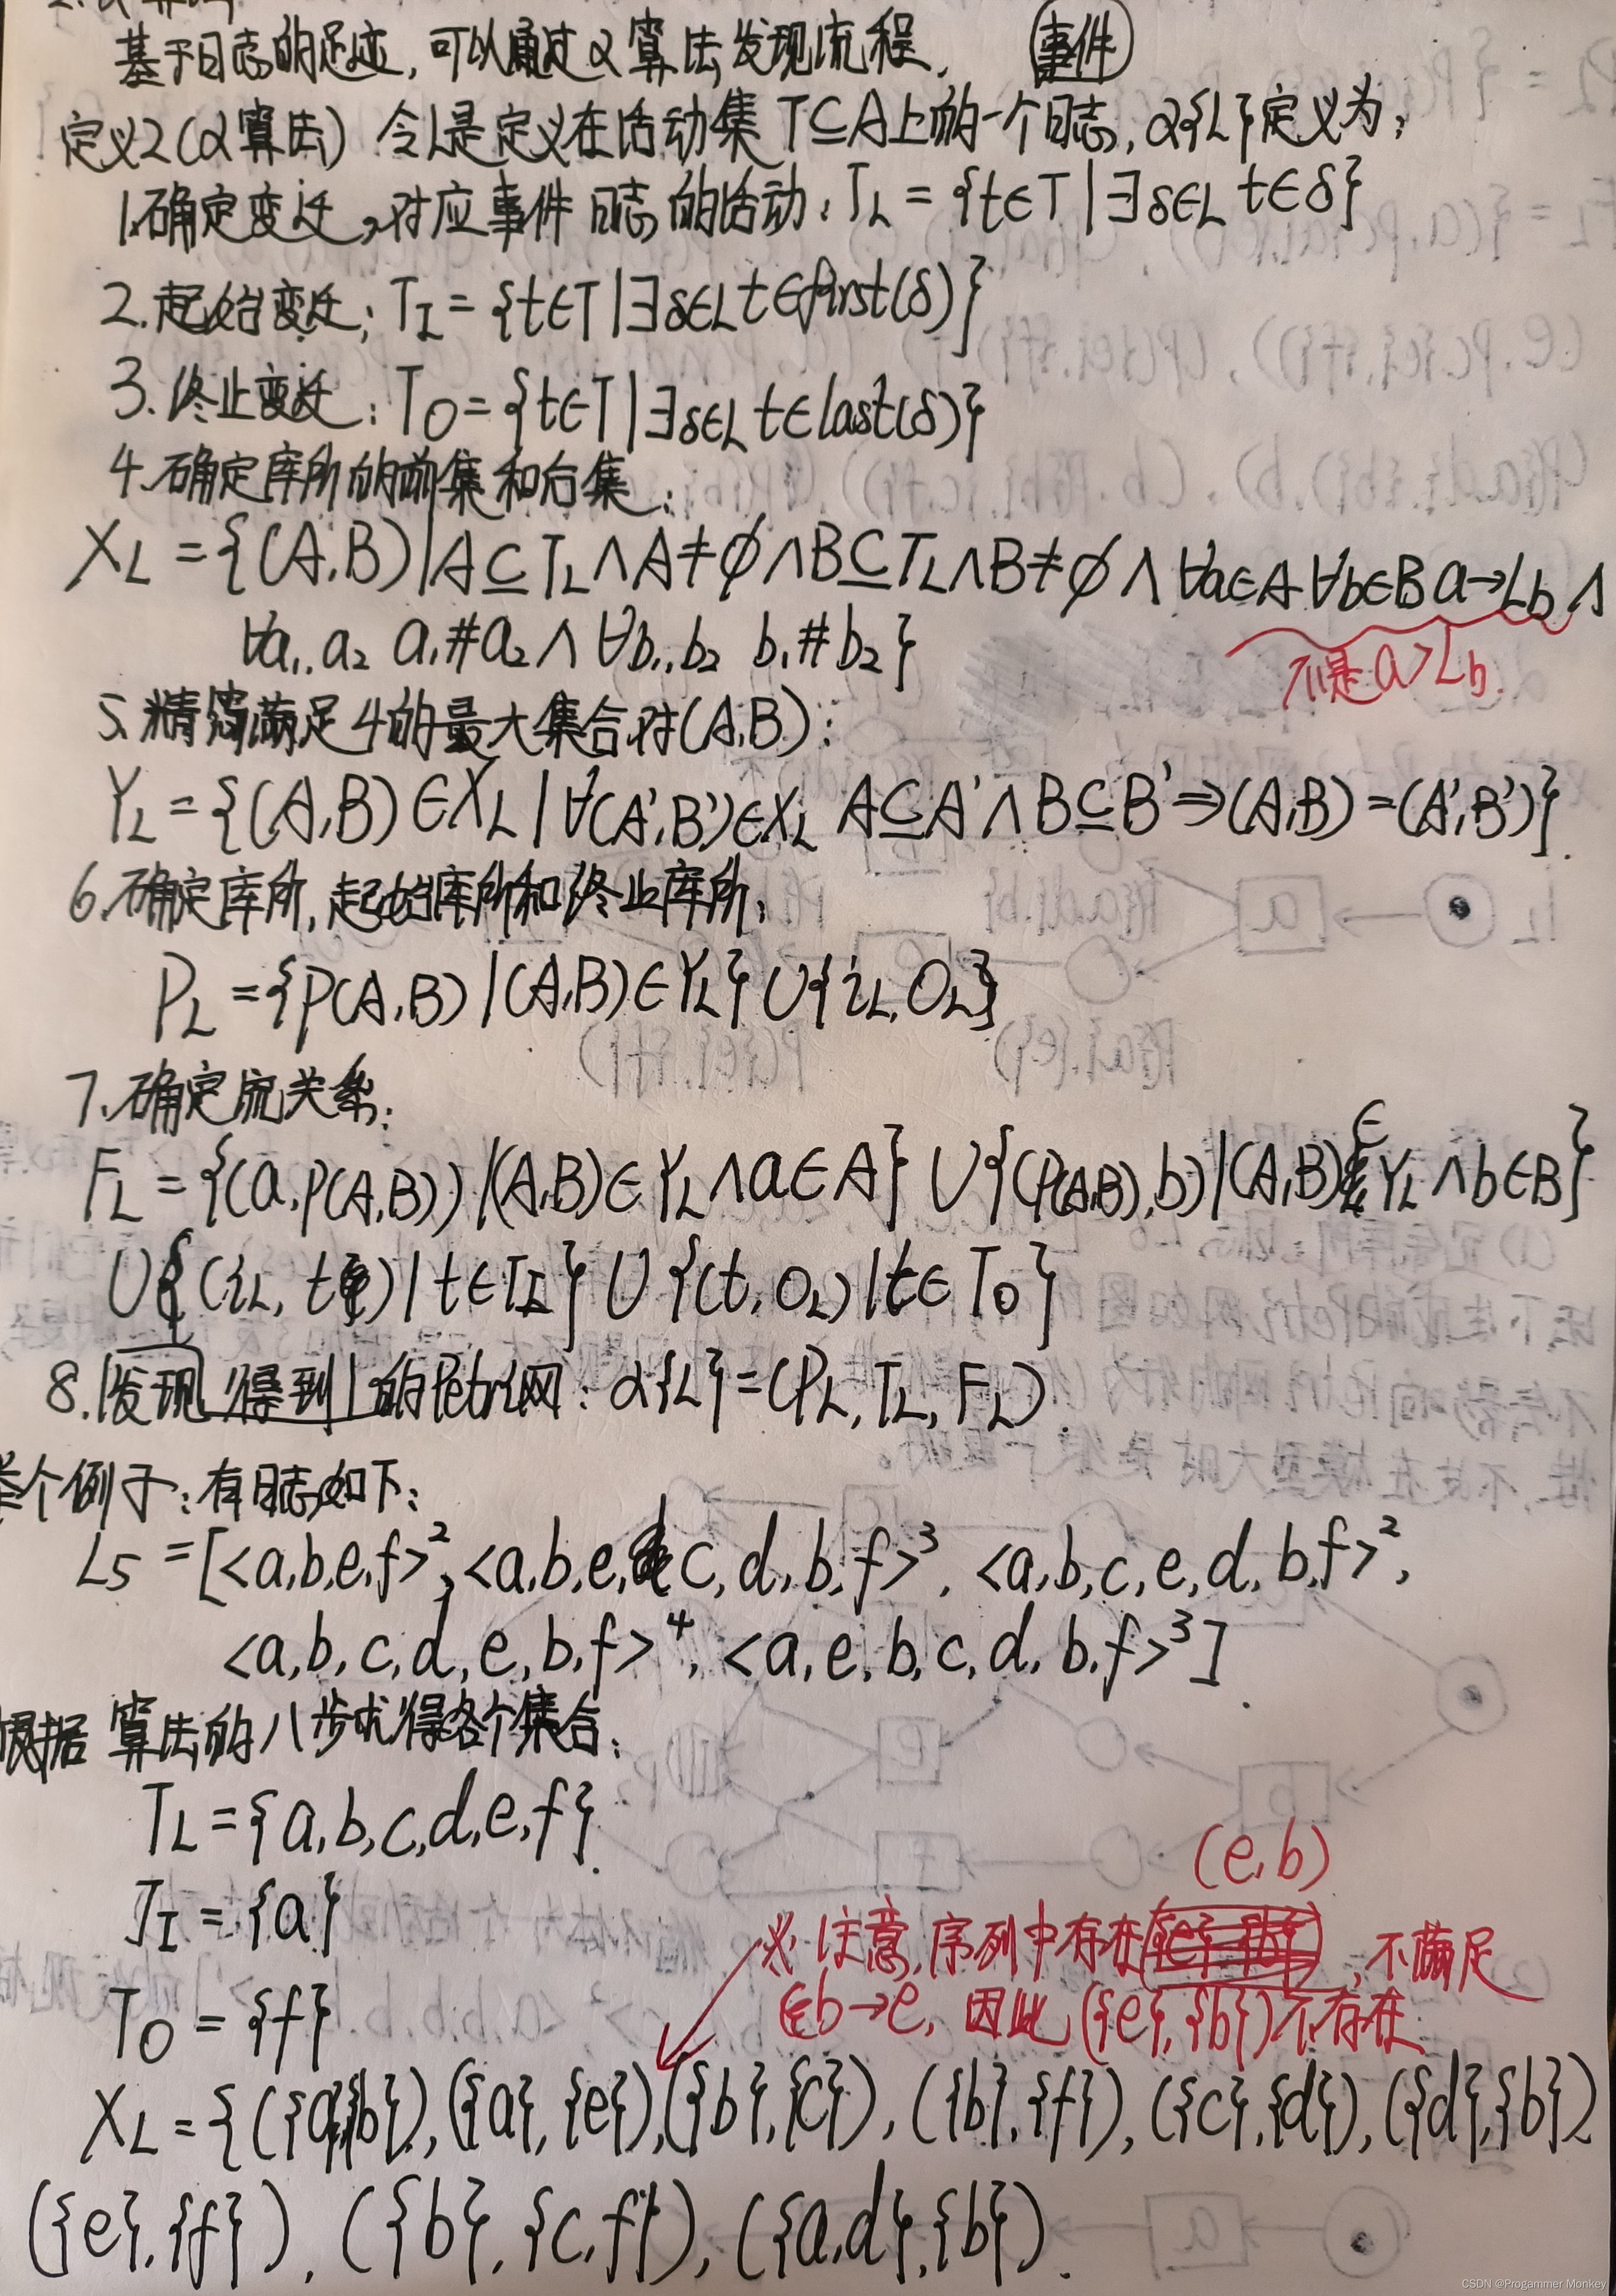 基于日志的足迹,可以通过α算法发现流程, 事件
定义2(α算法) 令L是定义在活动集 T⊆A上的一个日志,α{L}定义为:
1.确定变迁,对应事件日志的活动:T_L = {t∈T|∃δ∈L t∈δ}
2.起始变迁:T_I = {t∈T|∃δ∈L t∈first(δ)}
3.终止变迁:T_O = {t∈T|∃δ∈L t∈last(δ)}
4.确定库所的前集和后集:
X_L = {(A,B)|A⊆T_L∧A≠∅∧B⊆T_L∧B≠∅∧∀a∈A ∀b∈B a→Lb ∧
∀a₁,a₂ a₁#a₂∧∀b₁,b₂ b₁#b₂}
不是a>Lb
5.精简满足4的最大集合对(A,B):
Y_L = {(A,B)∈X_L|∀(A',B')∈X_L A⊆A'∧B⊆B'⇒(A,B)=(A',B')}
6.确定库所,起始库所和终止库所:
P_L = {P(A,B)|(A,B)∈Y_L}∪{i_L,O_L}
7.确定流关系:
F_L = {(a,P(A,B))|(A,B)∈Y_L∧a∈A}∪{(P(A,B),b)|(A,B)∈Y_L∧b∈B}
∪{(i_L,t)|t∈T_I}∪{(t,O_L)|t∈T_O}
8.发现得到的Petri网:α{L}=(P_L,T_L,F_L)
举个例子:有日志如下:
L5 = [<a,b,e,f>²,<a,b,e,c,d,b,f>³,<a,b,c,e,d,b,f>²,
<a,b,c,d,e,b,f>⁴,<a,e,b,c,d,b,f>³].
根据算法的八步求得各个集合:
T_L = {a,b,c,d,e,f}.
T_I = {a}
(e,b)
※注意,序列中存在,不满足
b→e,因此({e},{b})不存在
T_O = {f}
X_L = {({a},{b}),({a},{e}),({b},{c}),({b},{f}),({c},{d}),({d},{b})
({e},{f}),({b},{c,f}),({a,d},{b}).
CSDN @Progammer Monkey